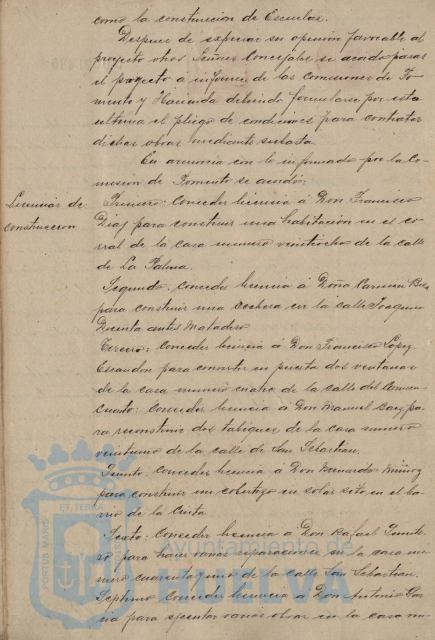 como la construccion de Escuelas.
Despues de expresar su opinión favorable al
proyecto otros Señores Concejales se acordó pasar
el proyecto a informe de las comisiones de Fo-
mento y Hacienda debiendo formularse por esta
ultima el pliego de condiciones para contratar
dichas obras mediante subasta.
En armonia con lo informado por la Co-
mision de Fomento se acordó:
Licencias de
construccion
Primero: Conceder licencia á Don Francisco
Diaz para construir una habitación en el co-
rral de la casa numero veintiocho de la calle
de La Palma.
Segundo: Conceder licencia á Doña Carmen
para construir una Cochera en la calle Joaquin
Dienta antes Matadero
Tercero: Conceder licencia á Don Francisco Lopez
Escandon para convertir en puerta dos ventanas
de la casa numero cuatro de la calle del
Cuarto: Conceder licencia á Don Manuel pa-
ra reconstruir dos tabiques de la casa numero
veintiuno de la calle de San Sebastian.
Quinto: Conceder licencia á Don Bernardo Muñoz
para construir un cobertizo en solar sito en el ba-
rrio de la
Sexto: Conceder licencia á Don Rafael
ro para hacer varias reparaciones en la casa nu-
mero cuarenta y uno de la calle San Sebastian.
Septimo: Conceder licencia á Don Antonio Gar-
cia para ejecutar varias obras en la casa nu-
PORTUS MARIS ET TERRAE
Ayuntamiento de
HUELVA